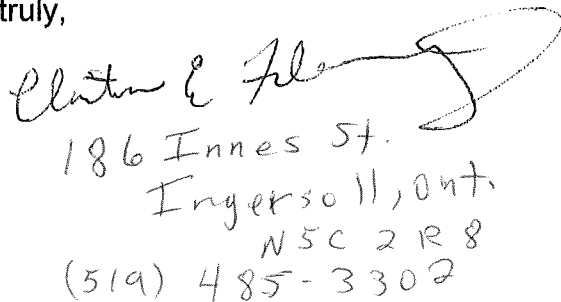 truly,
Clinton E Fleming
186 Innes St.
Ingersoll, Ont.
N5C 2R8
(519) 485-3302